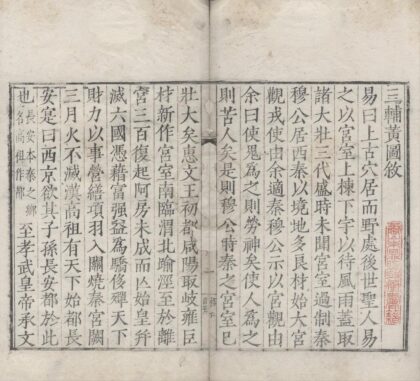 三輔黃圖敘
易曰上古穴居而野處後世聖人易
之以宮室上棟下宇以待風雨蓋取
諸大壯三代盛時未聞宮室過制秦
穆公居西秦以境地多良材始大宮
觀戎使由余適秦穆公示以宮觀由
余曰使鬼為之則勞神矣使人為之
則苦人矣是則穆公時秦之宮室已
壯大矣惠文王初都咸陽取岐雍巨
材新作宮室南臨渭北踰涇至於離
宮三百復起阿房未成而亡始皇并
滅六國憑藉富強益為驕侈殫天下
財力以事營繕項羽入關燒秦宮闕
三月火不滅漢高祖有天下始都長
安寔曰西京欲其子孫長安都於此
也長安本秦之鄉名高祖作都至孝武皇帝承文